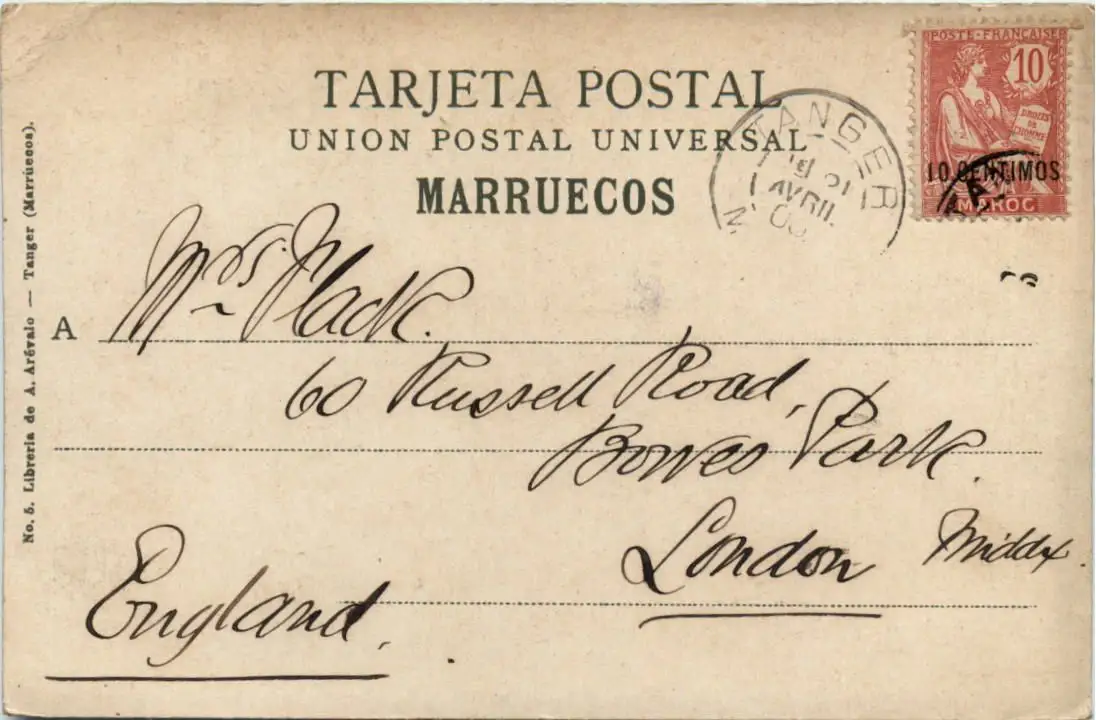 TARJETA POSTAL
UNION POSTAL UNIVERSAL
MARRUECOS
POSTE FRANÇAISE
10
DROITS
DE
L'HOMME
10 CENTIMOS
MAROC
TANGER
21
AVRIL
No. 5. Librería de A. Arévalo — Tanger (Marruecos).
A Mrs. Flack.
60 Russell Road,
Bowes Park.
London Middx.
England.